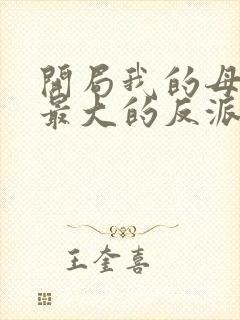 開局我的母
最大的反派
王奎喜